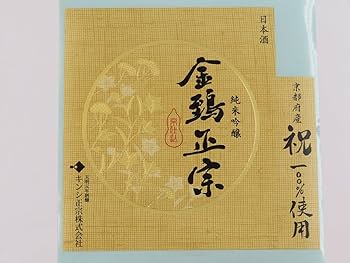 日本酒
金鵄正宗
純米吟醸
京都府産
祝
一〇〇%使用
天明元年創醸
キンシ正宗株式会社